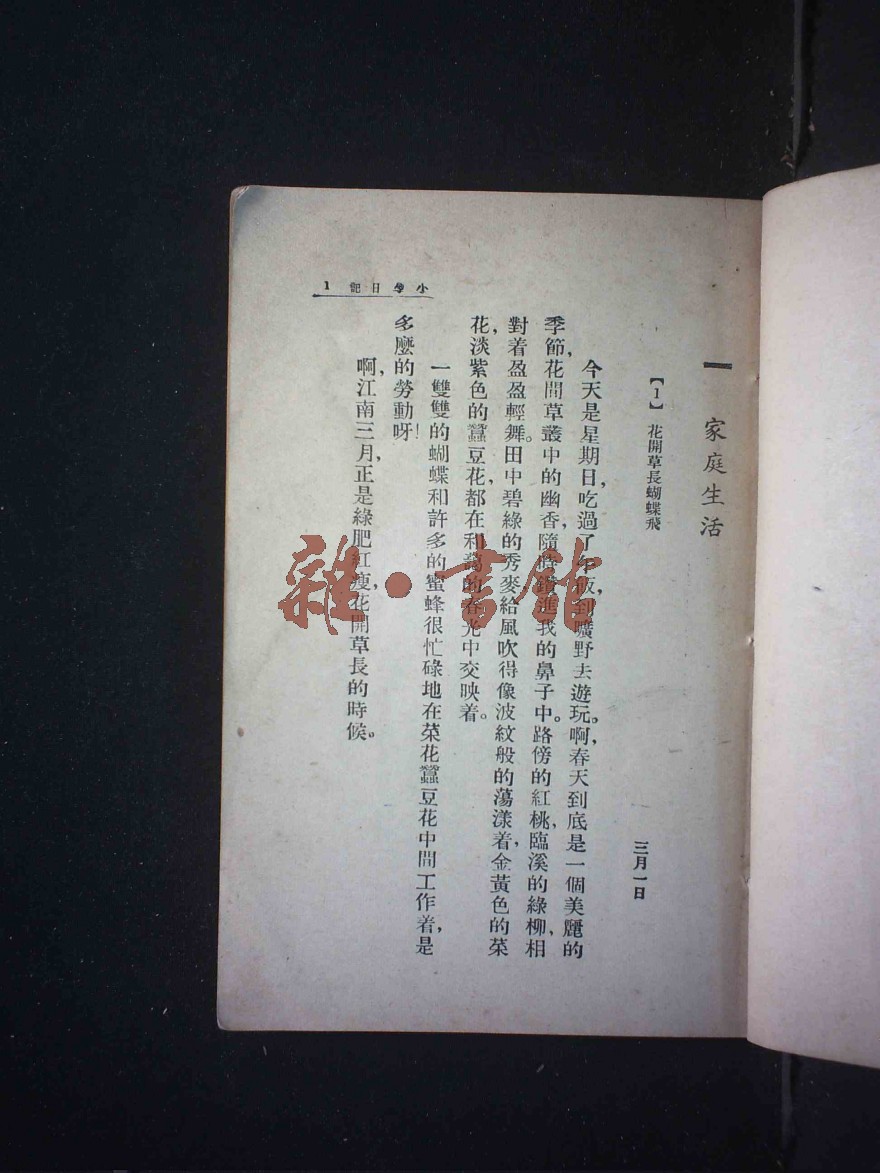 一 家庭生活
【1】 花開草長蝴蝶飛
三月一日
今天是星期日,吃過了午飯,到曠野去遊玩。啊,春天到底是一個美麗的
季節,花間草叢中的幽香,隨時鑽進我的鼻子中。路傍的紅桃,臨溪的綠柳,相
對着盈盈輕舞。田中碧綠的秀麥,給風吹得像波紋般的蕩漾着,金黃色的菜
花,淡紫色的蠶豆花,都在和藹的春光中交映着。
一雙雙的蝴蝶和許多的蜜蜂很忙碌地在菜花蠶豆花中間工作着,是
多麼的勞動呀!
啊,江南三月,正是綠肥紅瘦,花開草長的時候。
小學日記 1
雜·書館